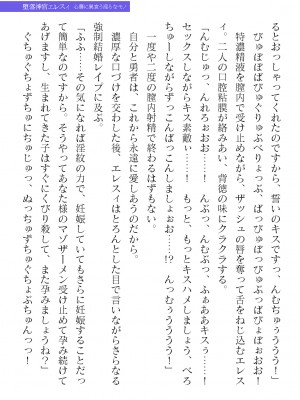 堕落神官エレスィ 心臓に巣食う淫らなモノ
るとおっしゃってくれたのですから、誓いのキスです……んむちゅぅううう！」
びゅぼぼぱびゅぐりゅぷべりょっぷ、ばぼっぴゅぷっぱびょぼぉおお！
特濃精液を膣内で受け止めながら、ザッシュの唇を奪って舌をねじ込むエレス
ィ。二人の口腔粘膜が絡みあい、背徳の味にクラクラする。
「んむじゅっ、んれろぉおお……！　んぷっ、んむぷっ、ふぁああキスぅ……！
セックスしながらキス素敵ぃ……！　もっと、もっとキスハメしましょう、べろ
ちゅーしながらずっこんばっこんしましょぉお……!?　んっむぅううううう！」
一度や二度の膣内射精で終わるはずもない。
自分と勇者は、これから永遠に愛しあうのだから。
濃厚な口づけを交わした後、エレスィはとろんとした目で言いながらさらなる
強制結婚レイプに及ぶ。
「ふふ……その気になれば淫紋の力で、妊娠していてもさらに妊娠することだっ
て簡単なのですから。そうやってあなた様のマゾザーメン受け止めて孕み続けて
あげますし、生まれてきた子はすぐにくびり殺して、また孕みましょうね？」
ぐちゅぐちょずちゅにちゅじゅっ、ぬっちゅずちゅぐちょぷちゅんっっ！